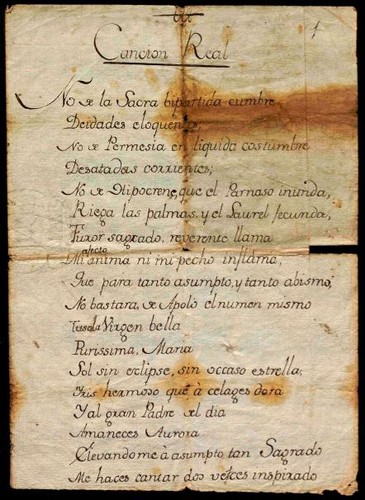 1
Cancion Real
No de la Sacra bipartida cumbre
Deidades eloquentes,
No de Permesia en liquida costumbre
Desatadas corrientes;
No de Hipocrene, que el Parnaso inunda,
Riega las palmas, y el Laurel fecunda,
Furor sagrado, reverente llama
afecto
Mi anima ni mi pecho inflama,
Que para tanto asumpto, y tanto abismo,
No bastara, de Apolo el numen mismo
Virgen bella
Purissima, Maria
Sol sin eclipse, sin occaso estrella;
Yris hermoso que à celages dora
Y al gran Padre del dia
Amaneces Aurora
Elevandome à asumpto tan Sagrado
Me haces cantar dos veces inspirado